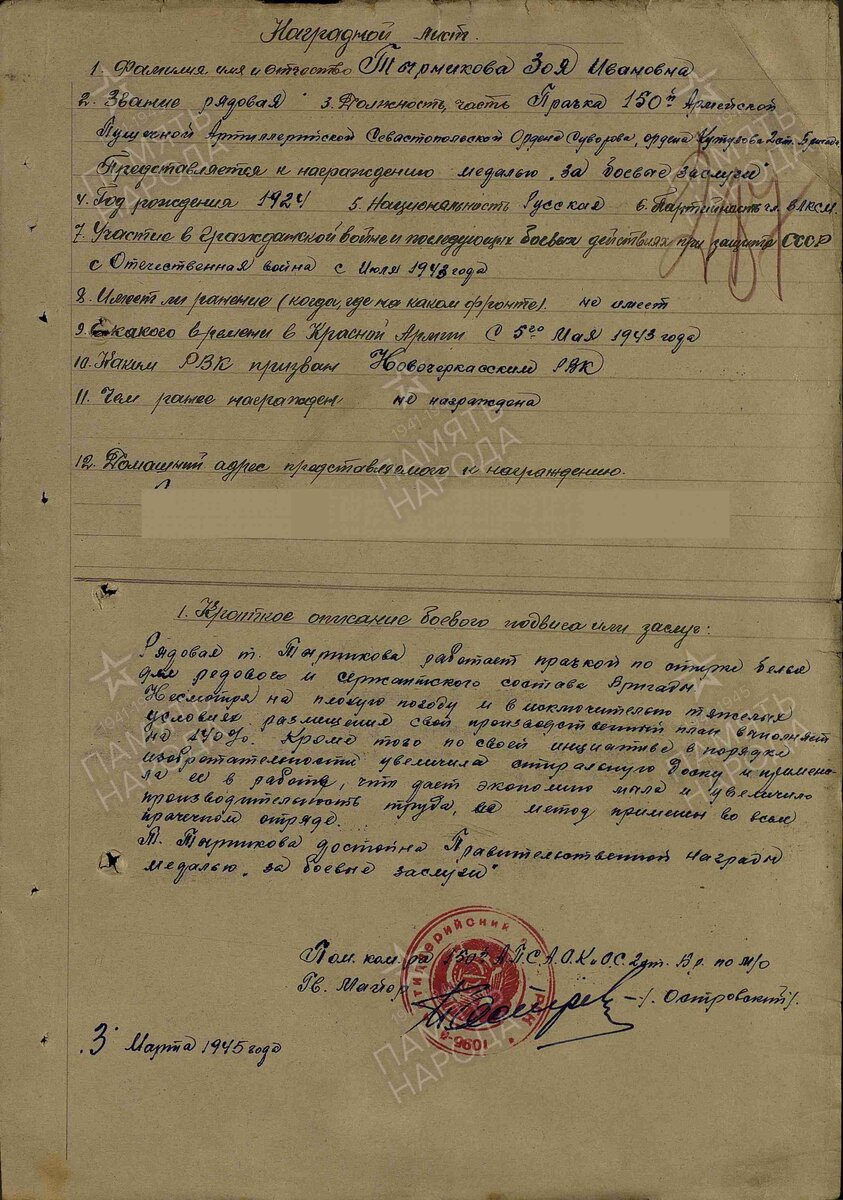 Наградной лист.
1. Фамилия имя и отчество Тырникова Зоя Ивановна
2. Звание рядовая 3. Должность, часть Прачка 150й Армейской
Пушечной Артиллерийской Севастопольской Ордена Суворова, ордена Кутузова 2 ст. Бригады
Представляется к награждению медалью „за боевые заслуги"
4. Год рождения 1924 5. Национальность Русская 6. Партийность чл. ВЛКСМ
7. Участие в гражданской войне и последующих боевых действиях при защите СССР
с Отечественная война с Июля 1943 года
8. Имеет ли ранение (когда, где на каком фронте). не имеет
9. С какого времени в Красной Армии С 5го Мая 1943 года
10. Каким РВК призван Новочеркасским РВК
11. Чем ранее награжден не награждена
12. Домашний адрес представляемого к награждению.
1. Краткое описание боевого подвига или заслуг:
Рядовая т. Тырникова работает прачкой по стирке белья
для редового и сержантского состава Бригады
Несмотря на плохую погоду и в исключительно тяжелых
условиях размещения свой производственный план выполняет
на 140%. Кроме того по своей инициативе в порядке
изобретательности увеличила стиральную доску и примени-
ла ее в работе, что дает экономию мыла и увеличило
производительность труда, ее метод применен во всем
прачечном отряде.
Т. Тырникова достойна Правительственной награды
медалью „за боевые заслуги"
Пом. ком-ра 150й А.П.С.А.О.К и О.С. 2 ст. Бр. по М/О
Гв. Майор /. Островский/.
3 Марта 1945 года
ПАМЯТЬ
НАРОДА